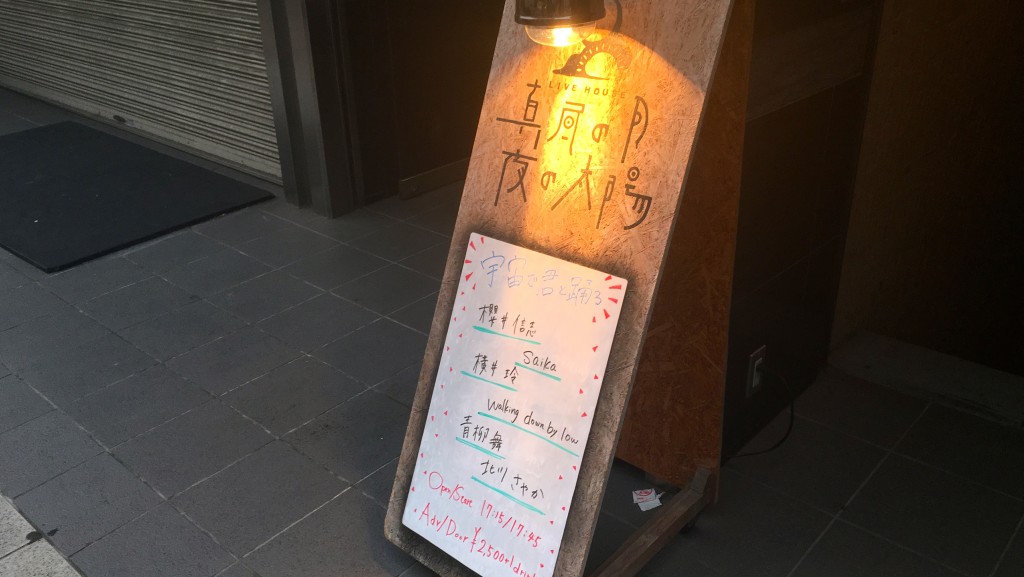 LIVE HOUSE
真昼の月
夜の太陽
宇宙で君と踊る
櫻井信志
Saika
横井玲
Walking down by low
青柳舞
北川さやか
Open/Start 17:15/17:45
Adv/Door ¥2,500+1drink